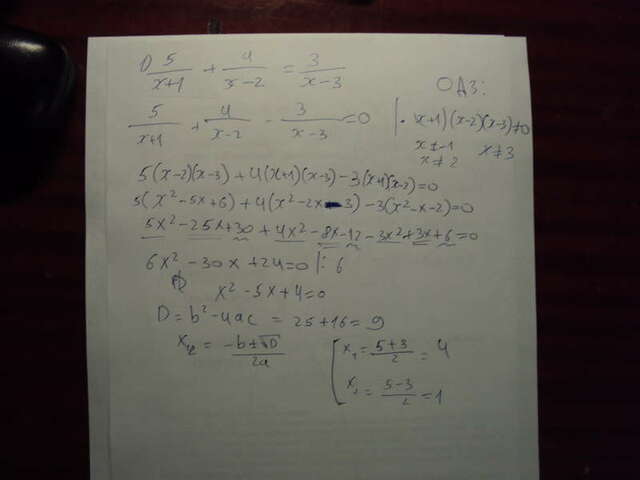 1) 5/(x+1) + 4/(x-2) = 3/(x-3)
ОДЗ:
5/(x+1) + 4/(x-2) - 3/(x-3) = 0 |· (x+1)(x-2)(x-3)≠0
x≠-1
x≠2 x≠3
5(x-2)(x-3)+4(x+1)(x-3)-3(x+1)(x-2)=0
5(x²-5x+6)+4(x²-2x-3)-3(x²-x-2)=0
5x²-25x+30+4x²-8x-12-3x²+3x+6=0
6x²-30x+24=0 |:6
x²-5x+4=0
D=b²-4ac = 25+16=9
x₁,₂ = (-b±√D)/2a
[ x₁ = (5+3)/2 = 4
x₂ = (5-3)/2 = 1